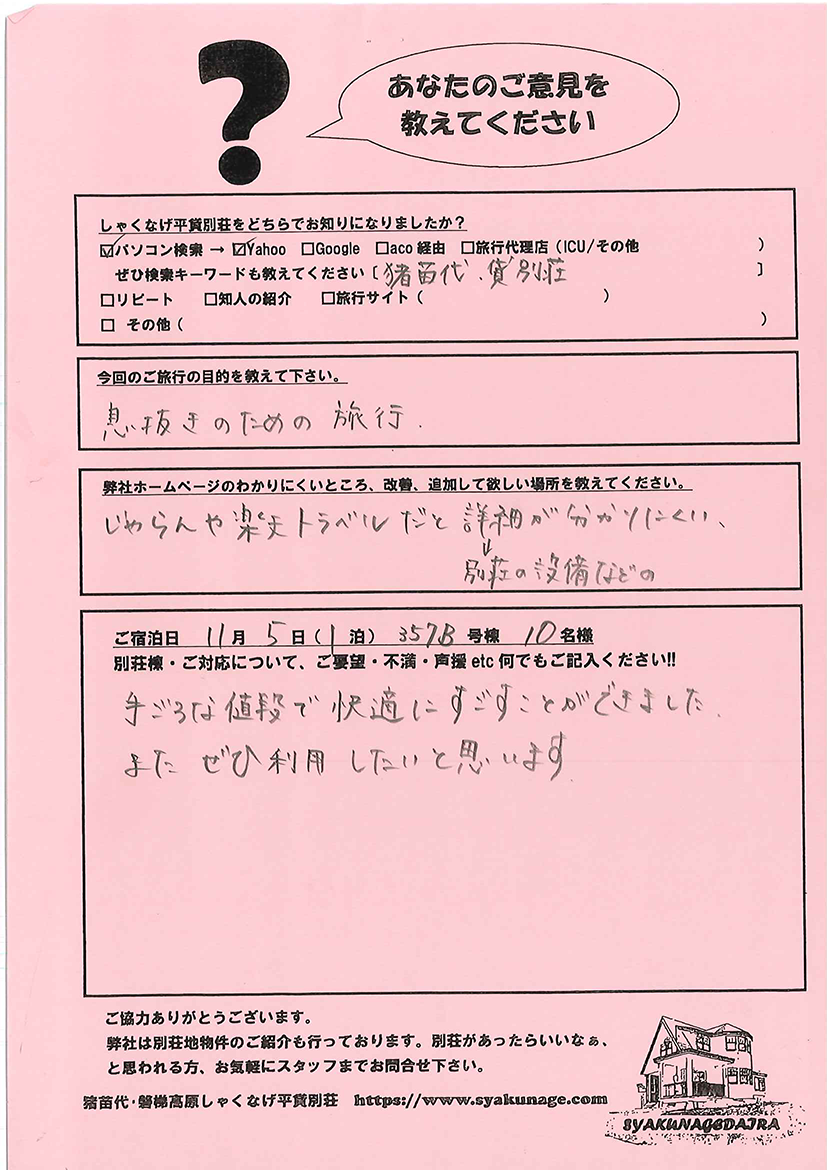 ?
あなたのご意見を
教えてください
しゃくなげ平貸別荘をどちらでお知りになりましたか？
☑パソコン検索 → ☑Yahoo □Google □aco 経由 □旅行代理店（ICU/その他 ）
ぜひ検索キーワードも教えてください［猪苗代、貸別荘 ］
□リピート □知人の紹介 □旅行サイト（ ）
□ その他（ ）
今回のご旅行の目的を教えて下さい。
息抜きのための旅行.
弊社ホームページのわかりにくいところ、改善、追加して欲しい場所を教えてください。
じゃらんや楽天トラベルだと詳細が分かりにくい、
↓
別荘の設備などの
ご宿泊日 11月 5日（1泊） 357B 号棟 10名様
別荘棟・ご対応について、ご要望・不満・声援 etc 何でもご記入ください!!
手ごろな値段で快適にすごすことができました.
また ぜひ利用したいと思います
ご協力ありがとうございます。
弊社は別荘地物件のご紹介も行っております。別荘があったらいいなぁ、
と思われる方、お気軽にスタッフまでお問合せ下さい。
猪苗代･磐梯高原しゃくなげ平貸別荘 https://www.syakunage.com
SYAKUNAGEDAIRA